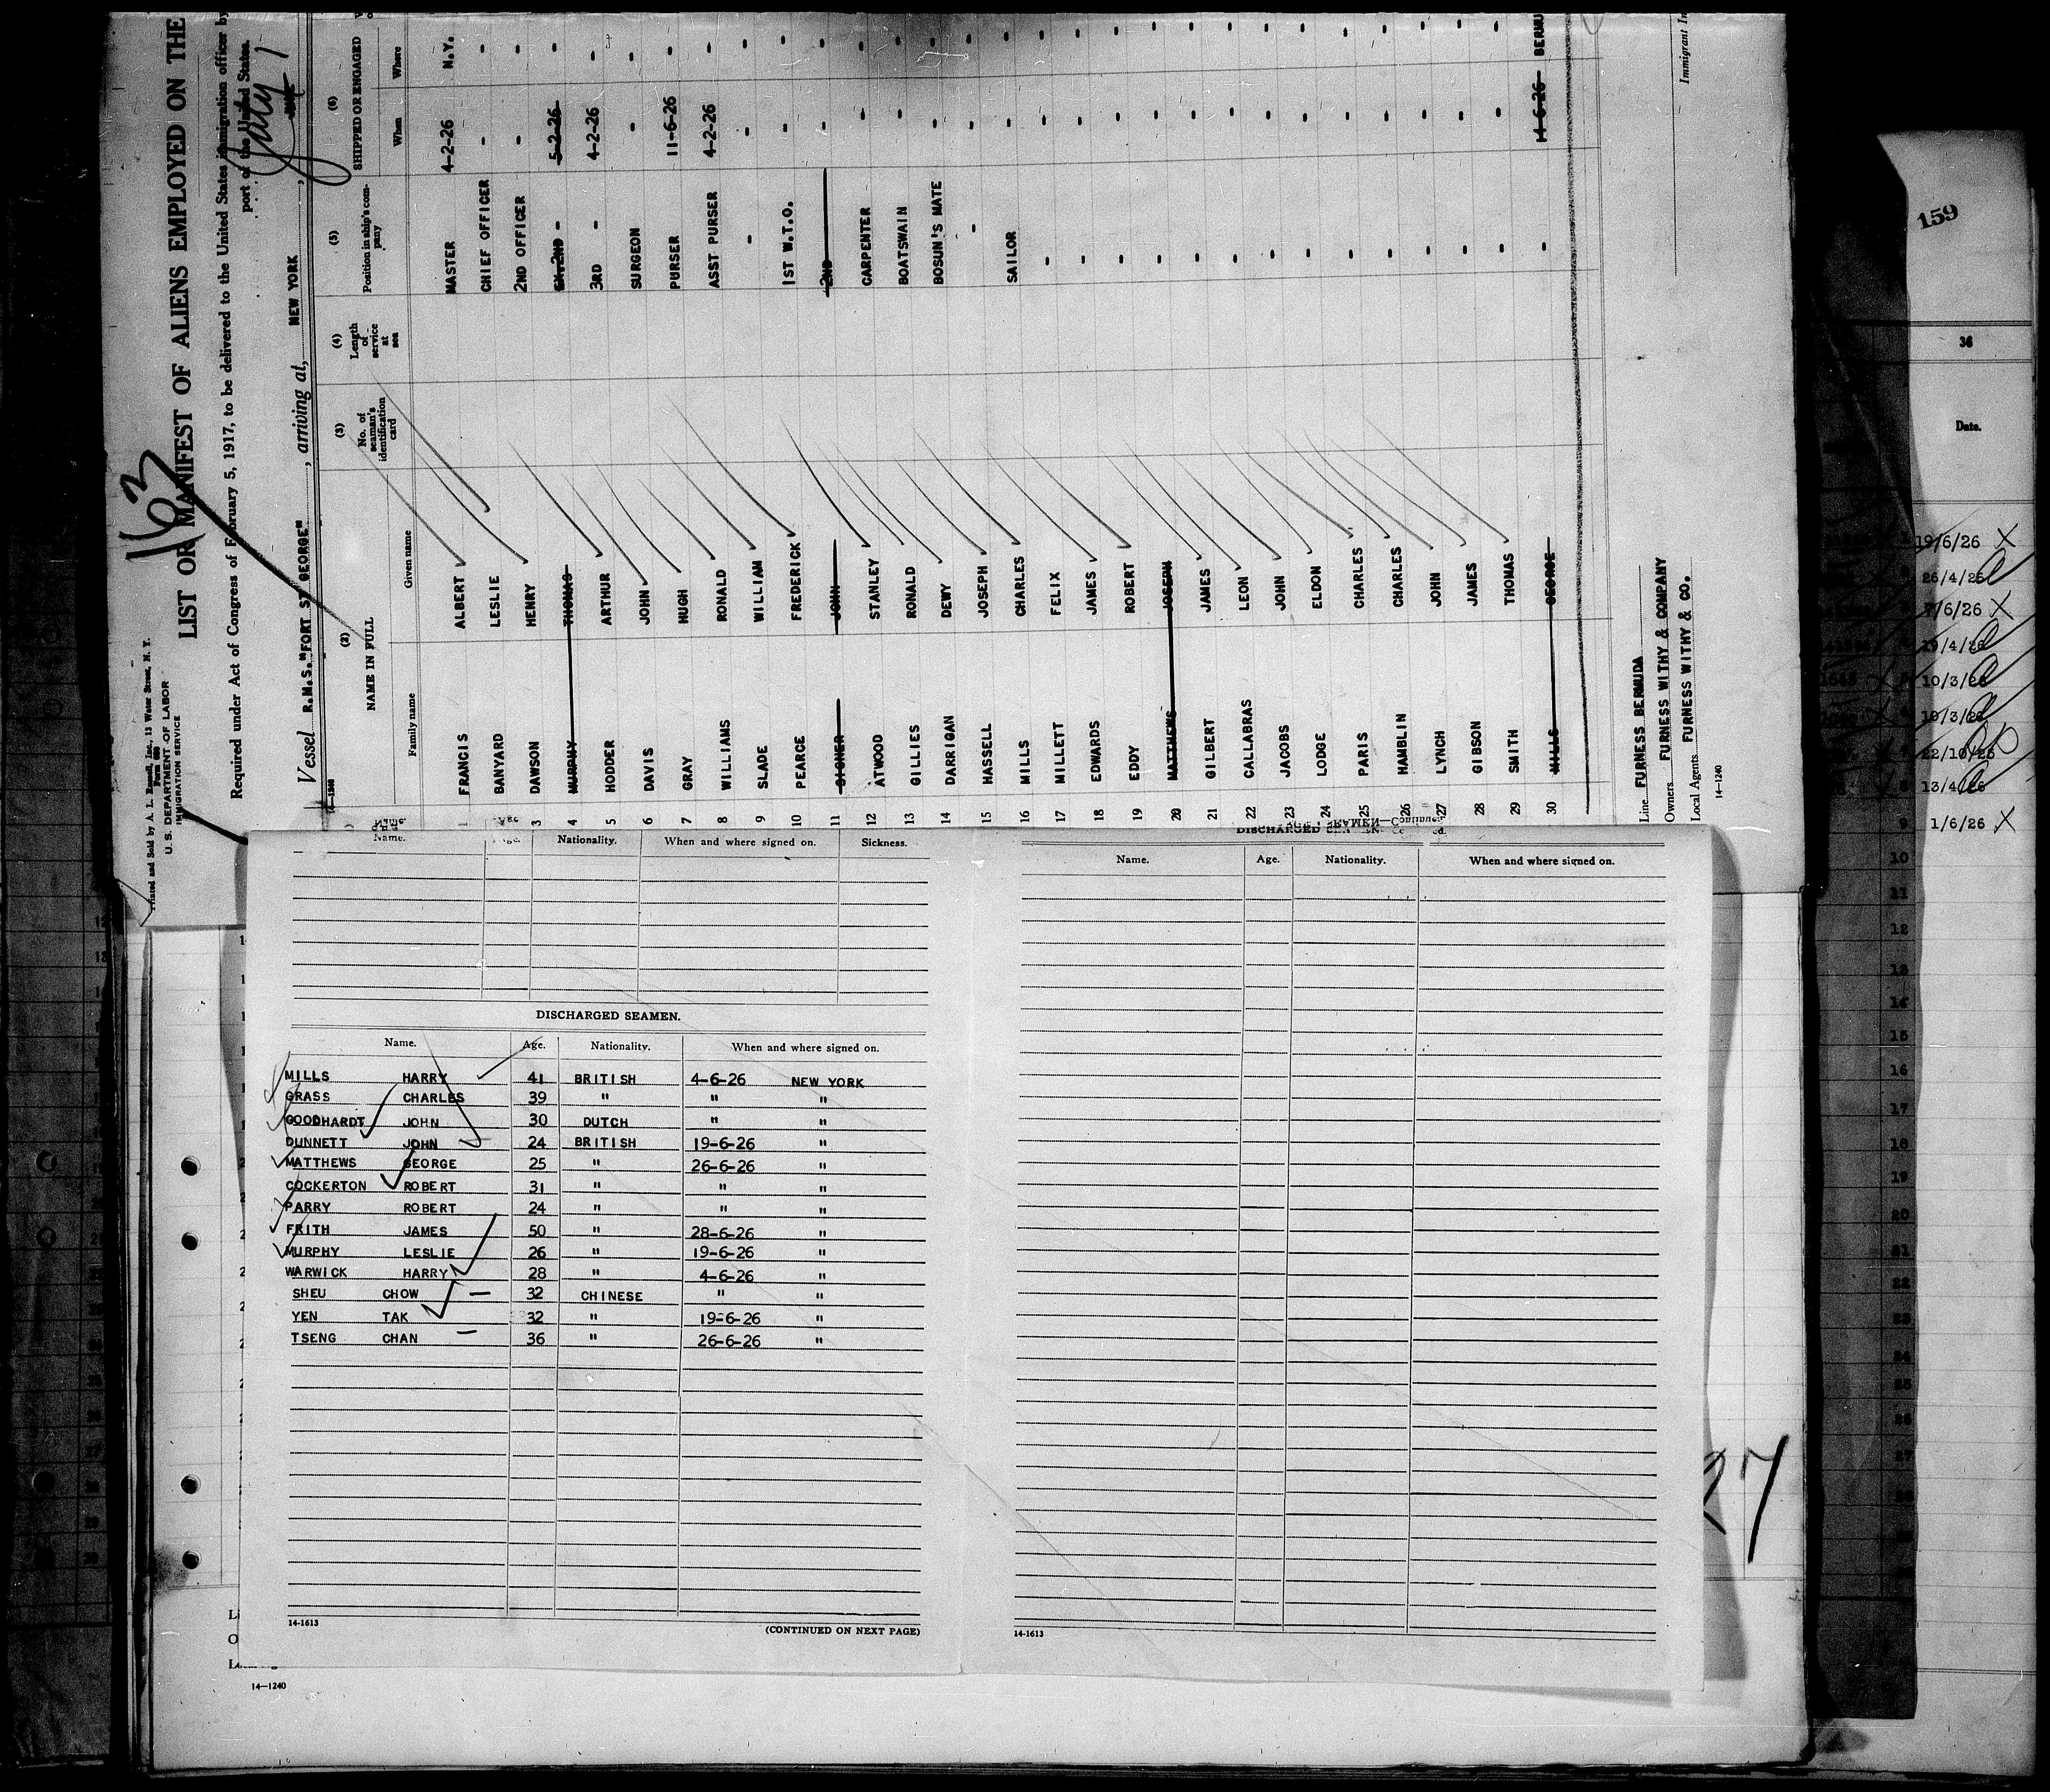 163
Printed and Sold by A. L. Russell, Inc., 12 Water Street, N. Y.
U. S. DEPARTMENT OF LABOR
IMMIGRATION SERVICE
LIST OR MANIFEST OF ALIENS EMPLOYED ON THE
Required under Act of Congress of February 5, 1917, to be delivered to the United States immigration officer by
port of the United States.
Vessel R.M.S."FORT ST GEORGE", arriving at, NEW YORK, July 1
14-1240
(2) (3) (4) (5) (6)
NAME IN FULL No. of seaman's identification card Length of service at sea Position in ship's company SHIPPED OR ENGAGED
Family name Given name When Where
1 FRANCIS ALBERT MASTER 4-2-26 N.Y.
BANYARD LESLIE CHIEF OFFICER - -
3 DAWSON HENRY 2ND OFFICER - -
4 MURPHY THOMAS EX.2ND - 5-2-26 -
5 HODDER ARTHUR 3RD - 4-2-26 -
6 DAVIS JOHN SURGEON - -
7 GRAY HUGH PURSER 11-6-26 -
8 WILLIAMS RONALD ASST PURSER 4-2-26 -
9 SLADE WILLIAM - - -
10 PEARCE FREDERICK 1ST W.T.O. - -
11 SIGNER JOHN 2ND - -
12 ATWOOD STANLEY CARPENTER - -
13 GILLIES RONALD BOATSWAIN - -
14 DARRIGAN DEWY BOSUN'S MATE - -
15 HASSELL JOSEPH - - -
16 MILLS CHARLES SAILOR - -
17 MILLETT FELIX - - -
18 EDWARDS JAMES - - -
19 EDDY ROBERT - - -
20 MATTHEWS JOSEPH - - -
21 GILBERT JAMES - - -
22 CALLABRAS LEON - - -
23 JACOBS JOHN - - -
24 LODGE ELDON - - -
25 PARIS CHARLES - - -
26 HAMBLIN CHARLES - - -
27 LYNCH JOHN - - -
28 GIBSON JAMES - - -
29 SMITH THOMAS - - -
30 MILLS GEORGE - 14-6-26 BERMU
Line FURNESS BERMUDA
Owners FURNESS WITHY & COMPANY
Local Agents FURNESS WITHY & CO.
14-1240
Immigrant
Name. Age. Nationality. When and where signed on. Sickness.
DISCHARGED SEAMEN.
Name. Age. Nationality. When and where signed on.
MILLS HARRY 41 BRITISH 4-6-26 NEW YORK
GRASS CHARLES 39 " " "
GOODHARDT JOHN 30 DUTCH " "
DUNNETT JOHN 24 BRITISH 19-6-26 "
MATTHEWS GEORGE 25 " 26-6-26 "
COCKERTON ROBERT 31 " " "
PARRY ROBERT 24 " " "
FRITH JAMES 50 " 28-6-26 "
MURPHY LESLIE 26 " 19-6-26 "
WARWICK HARRY 28 " 4-6-26 "
SHEU CHOW 32 CHINESE " "
YEN TAK 32 " 19-6-26 "
TSENG CHAN 36 " 26-6-26 "
14-1613
(CONTINUED ON NEXT PAGE)
Name. Age. Nationality. When and where signed on.
14-1613
27
14—1240
159
36
Date.
19/6/26 X
26/4/26
7/6/26 X
19/4/26
10/3/26
10/3/26
22/10/26
13/4/26
9 1/6/26 X
10
11
12
13
14
15
16
17
18
19
20
21
22
23
24
25
26
27